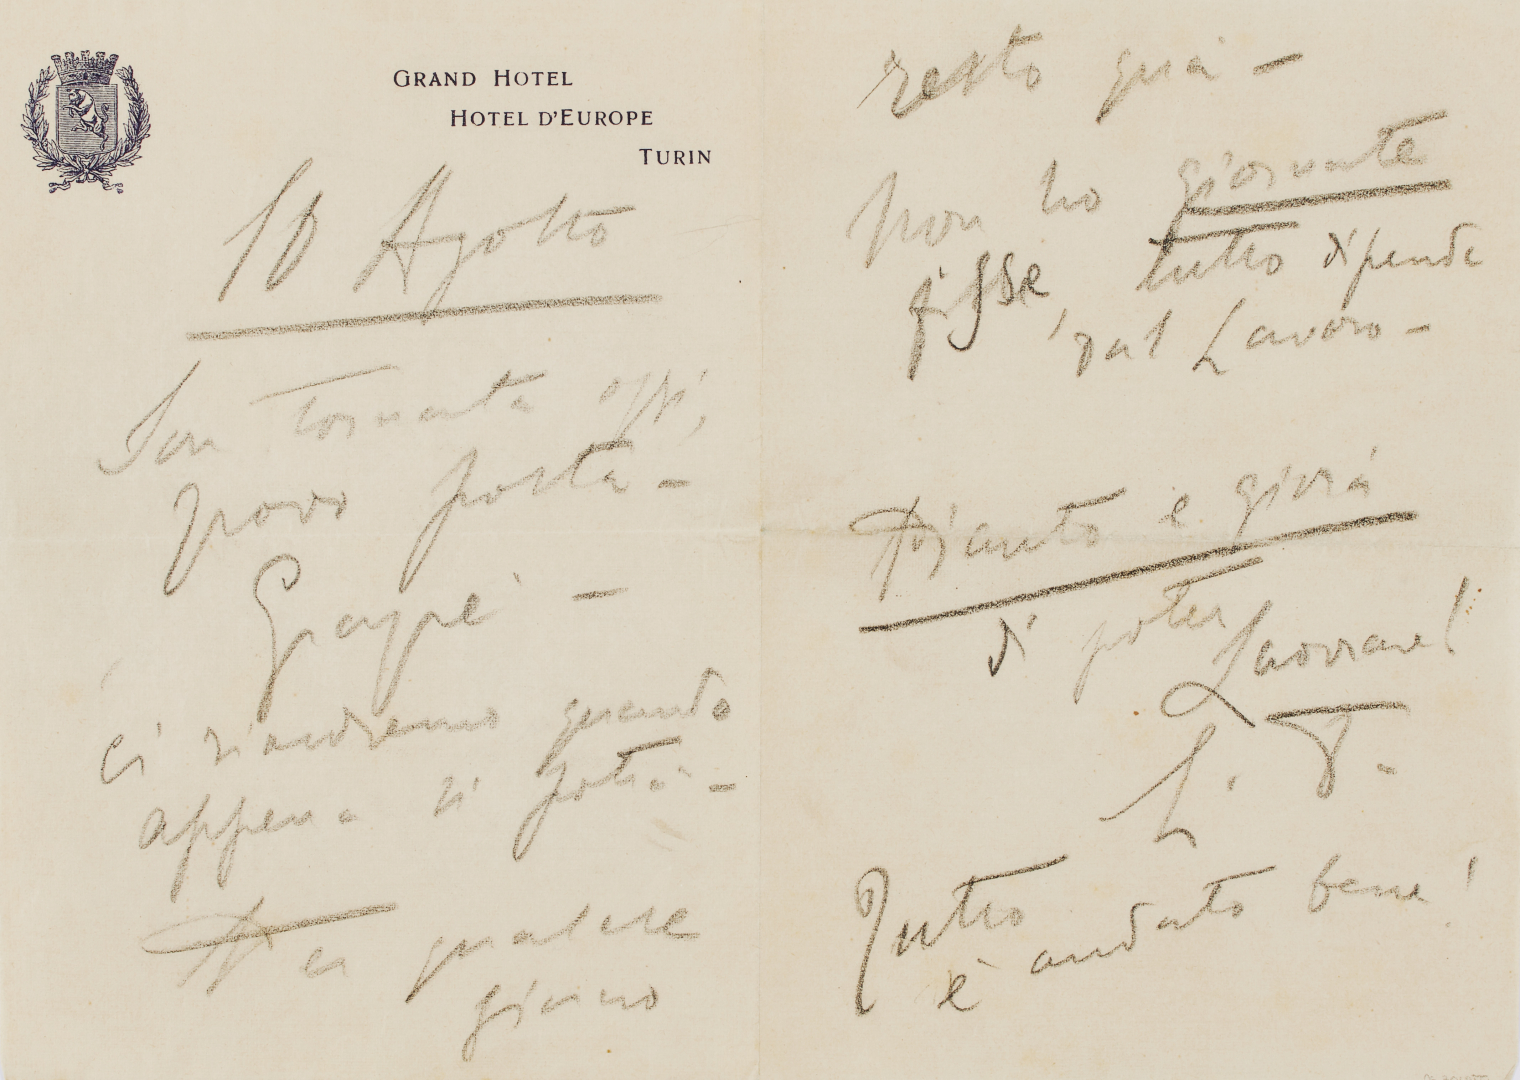 GRAND HOTEL
HOTEL D'EUROPE
TURIN
10 Agosto
Son tornata oggi,
trovo posta -
Grazie -
ci rivedremo quando
appena si potrà -
Per qualche
giorno
resto quà -
Non ho giornate
fisse tutto dipende
dal Lavoro -
Pianto e gioia
di poter
Lavorare!
Tutto
è andato bene!